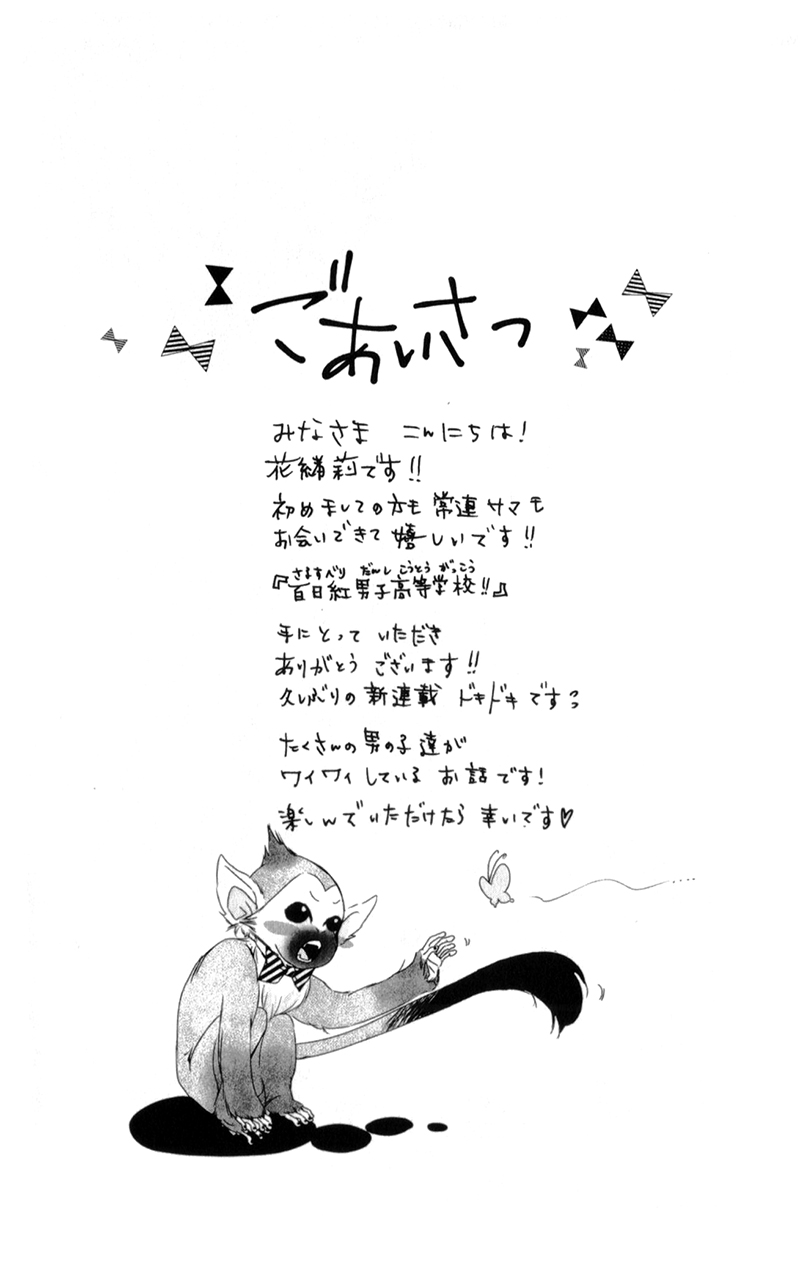 ごあいさつ
みなさま こんにちは!
花緒莉です!!
初めましての方も 常連サマも
お会いできて 嬉しいです!!
さるすべり だんし こうとう がっこう
『百日紅男子高等学校!!』
手にとって いただき
ありがとう ございます!!
久しぶりの 新連載 ドキドキですっ
たくさんの 男の子達が
ワイワイ している お話です!
楽しんで いただけたら 幸いです♡